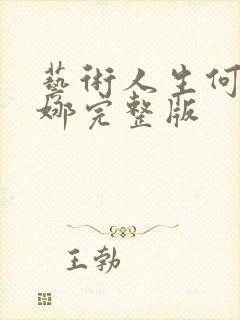 藝術人生何
娜完整版
王勃